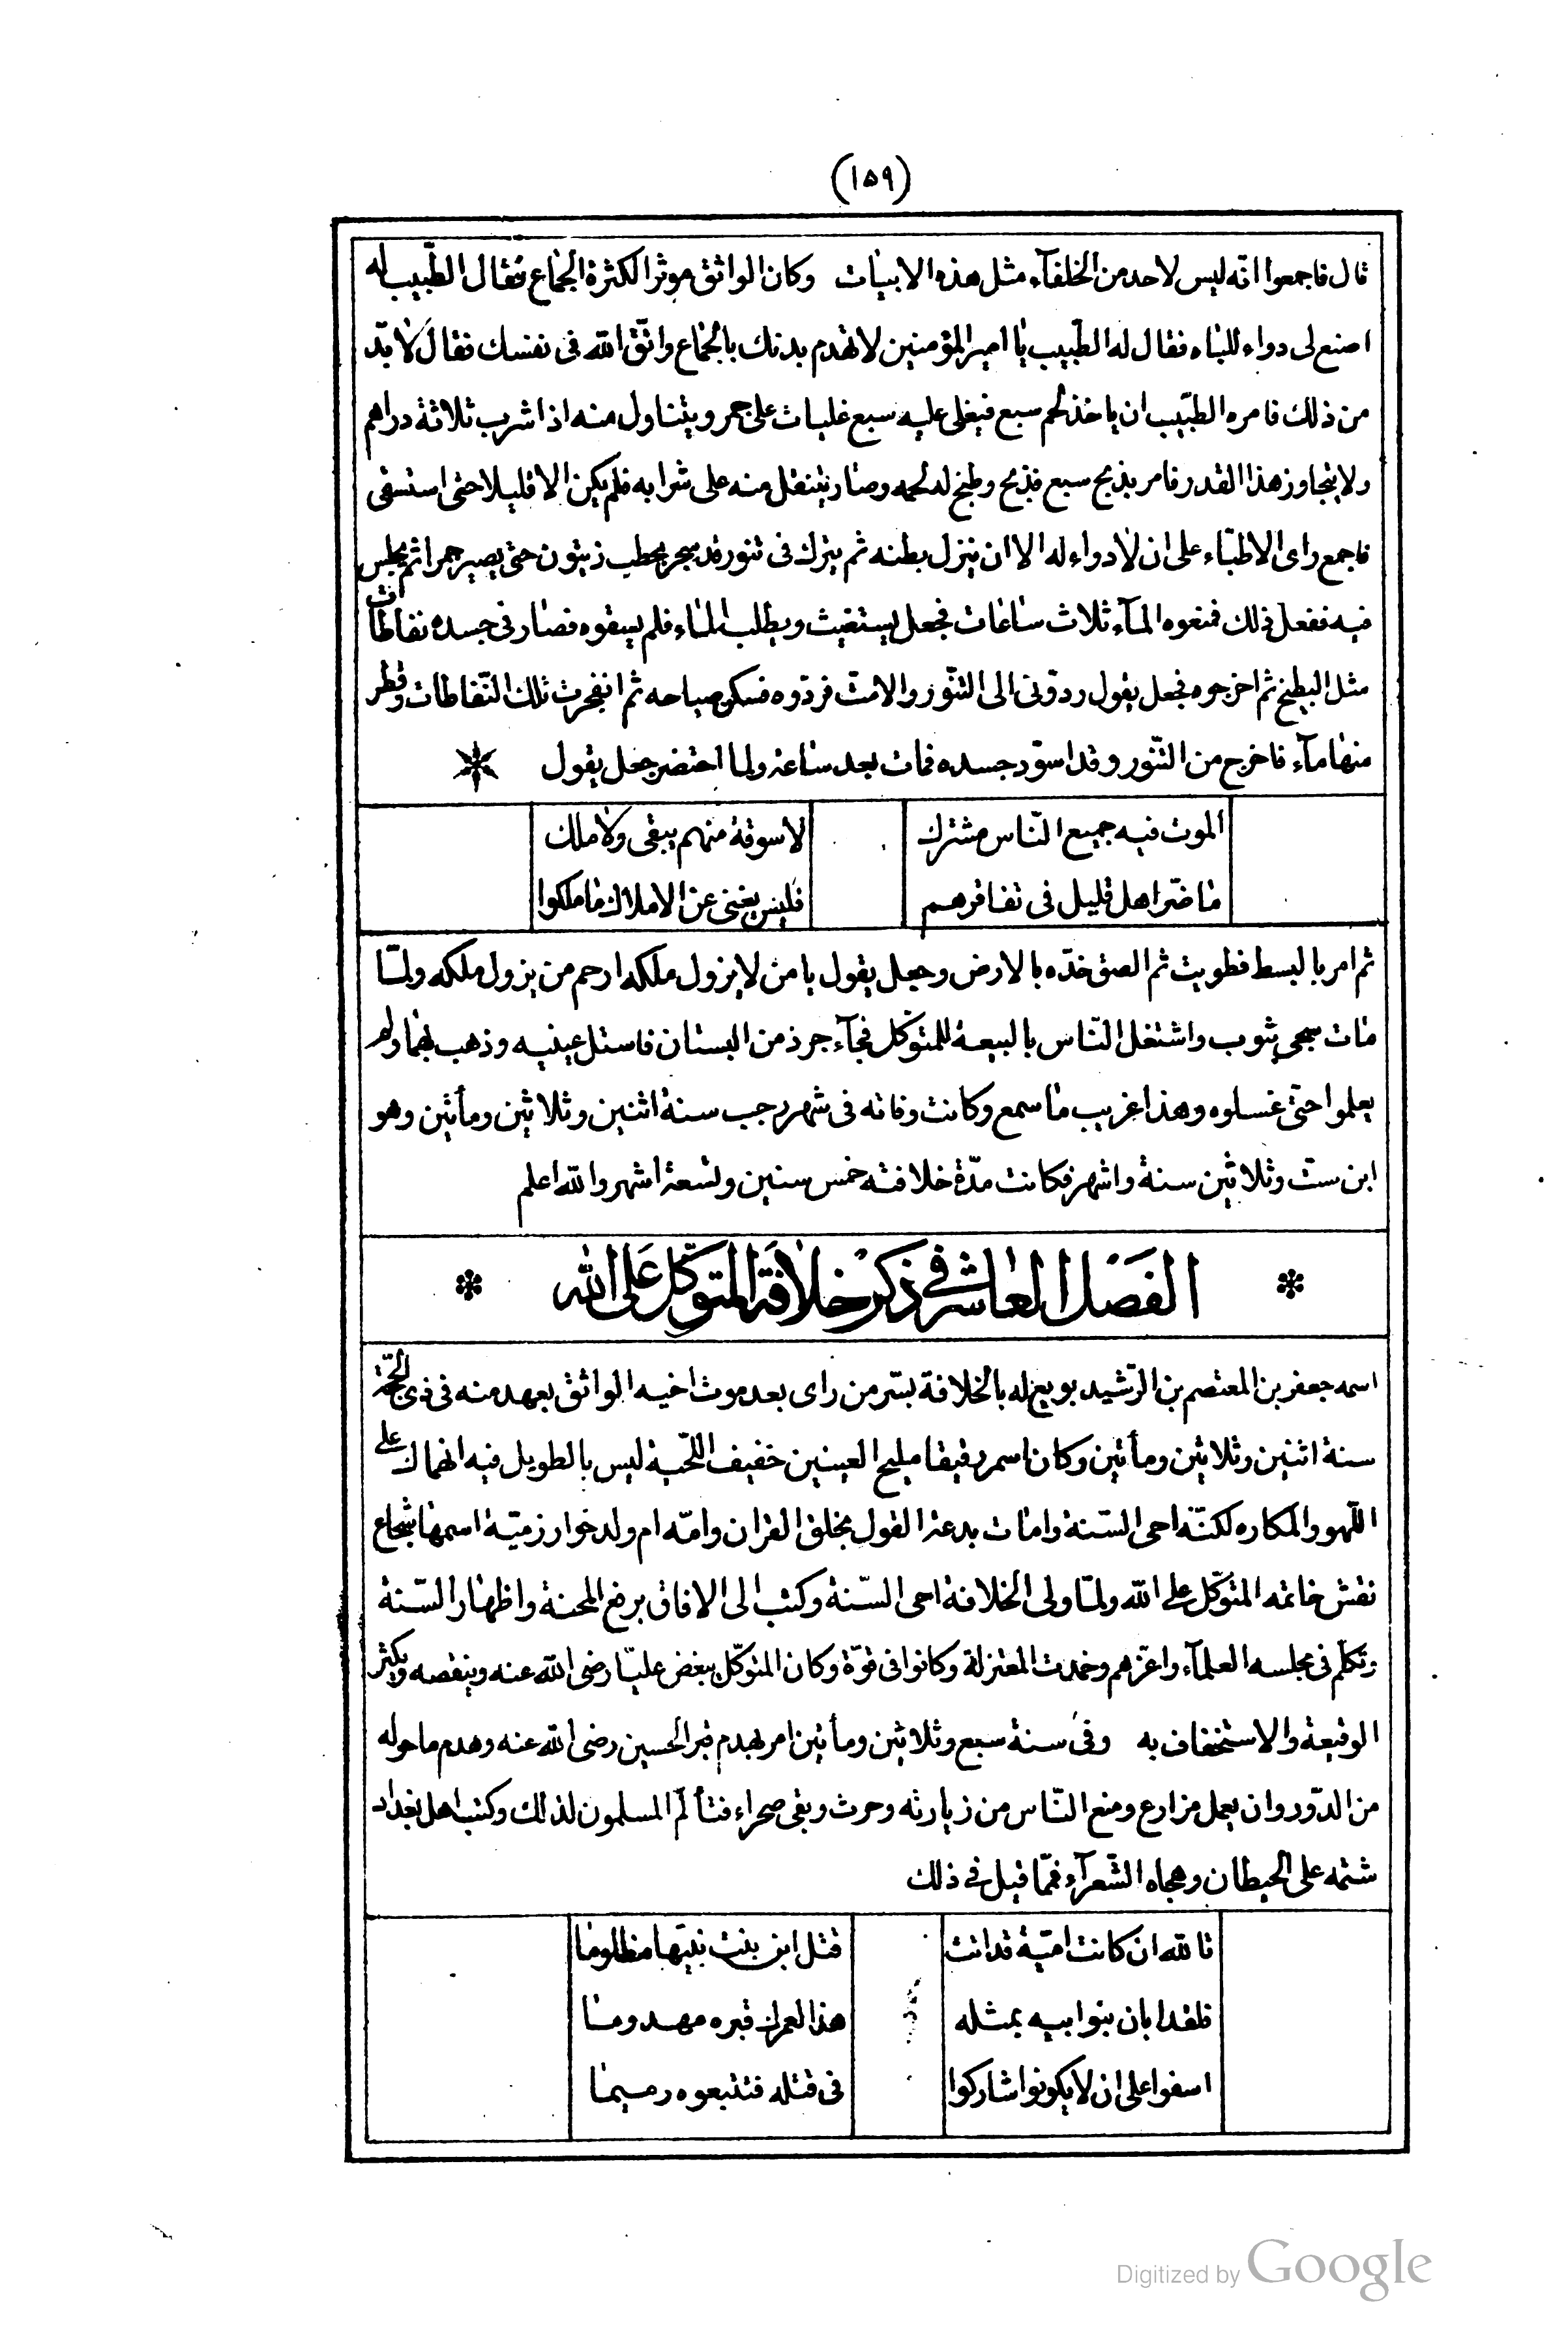 (١٥٩)
قال فاجمعوا انّه ليس لاحد من الخلفآء مثل هذه الابيات وكان الواثق موثرا لكثرة الجماع فقال الطّبيب له
اصنع لى دواء للباه فقال له الطّبيب يا امير المؤمنين لا تهدم بدنك بالجماع واتّق الله فى نفسك فقال لا بدّ
من ذلك فامره الطّبيب ان ياخذ لحم سبع فيغلى عليه سبع غليات على جمر ويتناول منه اذا شرب ثلاثة دراهم
ولا يتجاوز هذا القدر فامر بذبح سبع فذبح وطبخ له لحمه وصار يتنقل منه على شرابه فلم يكن الا قليلا حتى استسقى
فاجمع راى الاطبّاء على ان لا دواء له الا ان ينزل بطنه ثم يترك فى تنور قد سجر بحطب زيتون حتى يصير جمرا ثم يجلس
فيه ففعل ذلك فمنعوه المآء ثلاث ساعات فجعل يستغيث ويطلب الماء فلم يسقوه فصار فى جسده نفاطات
مثل البطيخ ثم اخرجوه فجعل يقول ردّونى الى التنّور والا متّ فردّوه فسكن صياحه ثم انفجرت تلك النّفاطات وقطر
منها مآء فاخرج من التّنور وقد اسوّد جسده فمات بعد ساعة ولما احتضر جعل يقول
الموت فيه جميع النّاس مشترك لا سوقة منهم يبقى ولا ملك
ما ضرّ اهل قليل فى تفاقرهم فليس يغنى عن الاملاك ما ملكوا
ثم امر بالبسط فطويت ثم الصق خدّه بالارض وجعل يقول يا من لا يزول ملكه ارحم من يزول ملكه ولمّا
مات سجى بثوب واشتغل النّاس بالبيعة للمتوكّل فجآء جرذ من البستان فاستل عينيه وذهب بهما ولم
يعلموا حتى غسلوه وهذا غريب ما سمع وكانت وفاته فى شهر رجب سنة اثنين وثلاثين ومأتين وهو
ابن ستّ وثلاثين سنة واشهر فكانت مدّة خلافته خمس سنين وتسعة اشهر والله اعلم
الفصل العاشر فى ذكر خلافة المتوكّل على الله
اسمه جعفر بن المعتصم بن الرّشيد بويع له بالخلافة بسّر من راى بعد موت اخيه الواثق بعهد منه فى ذى الحجّة
سنة اثنين وثلاثين ومأتين وكان اسمر رقيقا مليح العينين خفيف اللّحية ليس بالطويل فيه انهماك على
اللّهو والمكاره لكنّه احى السّنة وامات بدعة القول بخلق القران وامّه ام ولد خوارزميّة اسمها شجاع
نقش خاتمه المتوكّل على الله ولمّا ولى الخلافة احى السّنة وكتب الى الافاق برفع المحنة واظهار السّنة
وتكلّم فى مجلسه العلمآء واعزّهم وخمدت المعتزلة وكانوا فى قوّة وكان المتوكّل يبغض عليّا رضى الله عنه وينقصه ويكثر
الوقيعة والاستخفاف به وفى سنة سبع وثلاثين ومأتين امر بهدم قبر الحسين رضى الله عنه وهدم ما حوله
من الدّور وان يعمل مزارع ومنع النّاس من زيارته وحرث وبقى صحراء فتألّم المسلمون لذلك وكتب اهل بغداد
شتمه على الحيطان وهجاه الشّعرآء فممّا قيل فى ذلك
تالله ان كانت اميّة قد اتت قتل ابن بنت نبيّها مظلوما
فلقد ابان بنوا ابيه بمثله هذا لعمرك قبره مهدوما
اسفوا على ان لا يكونوا شاركوا فى قتله فتتبعوه رميما
Digitized by Google